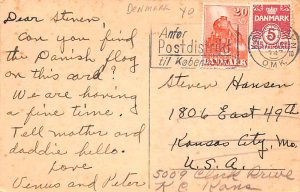 DENMARK 40
Dear Steven,
Can you find
the Danish flag
on this card?
We are having
a fine time.
Tell mother and
daddie hello.
Love
Venus and Peter
Anfør
Postdistrikt
til København
20
DANMARK
DANMARK
5
OMK.
Steven Hansen
1806 East 49th
Kansas City, Mo.
U.S.A.
5009 Clark Drive
K C Kans